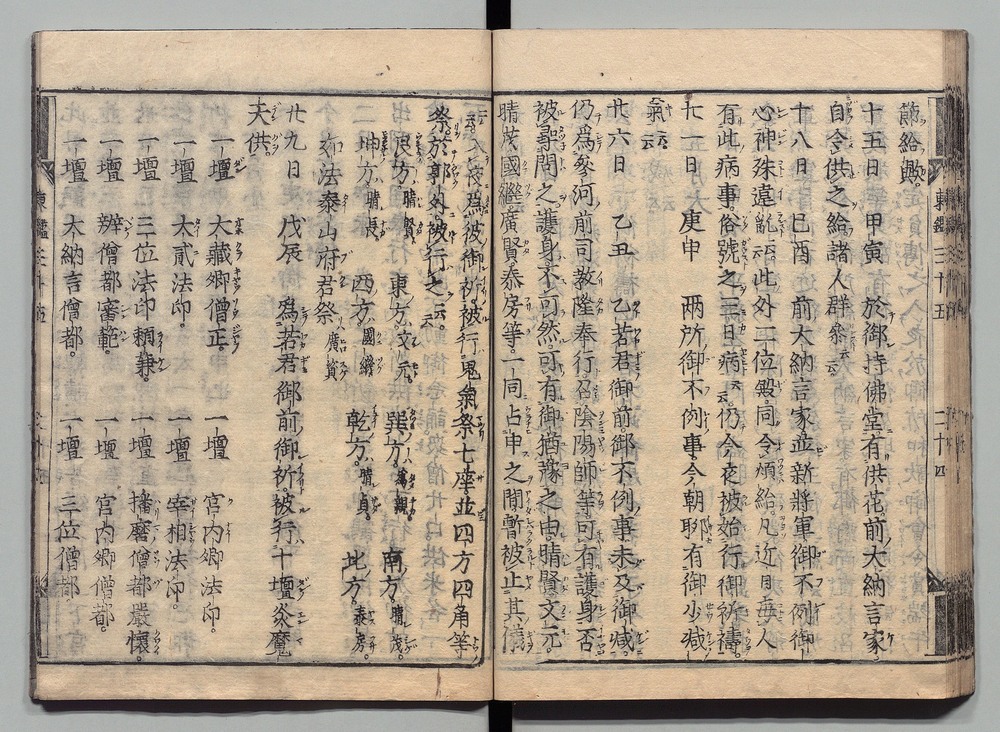 節給歟。
十五日 甲寅 於御持佛堂有供花。前大納言家
自令供之給。諸人群參云云
十八日 己酉 前大納言家並新將軍御不例。御
心神殊違亂云云。此外二位殿。同令煩給。凡近日毎人
有此病事。俗號之三日病云云。仍今夜被始行御祈禱。
廿一日 庚申 兩所御不例事。今朝耶有御少減
氣云云
廿六日 乙丑 乙若君御前御不例事。未及御減。
仍爲參河前司教隆奉行。召陰陽師等。可有護身否
被尋問之。護身不可然。可有御猶豫之由。晴賢文元
晴茂國繼。廣賢泰房等。一同占申之間。暫被止其儀
今夜爲彼御祈被行。鬼氣祭七座。並四方四角等
祭。於郭外被行之云云
艮方。晴賢。 東方。文元。 巽方。爲親。 南方。晴茂。
坤方。晴長。 西方。國繼 乾方。晴貞。 北方。泰房。
如法泰山府君祭 廣資
廿九日 戊辰 爲若君御前御祈被行十壇炎魔
天供。
一壇 大藏卿僧正。 一壇 宮内卿法印。
一壇 大貳法印。 一壇 宰相法印。
一壇 三位法印頼兼。 一壇 播磨僧都嚴懷。
一壇 辨僧都審範。 一壇 宮内卿僧都。
一壇 大納言僧都。 一壇 三位僧都。
東鑑三十五 二十四